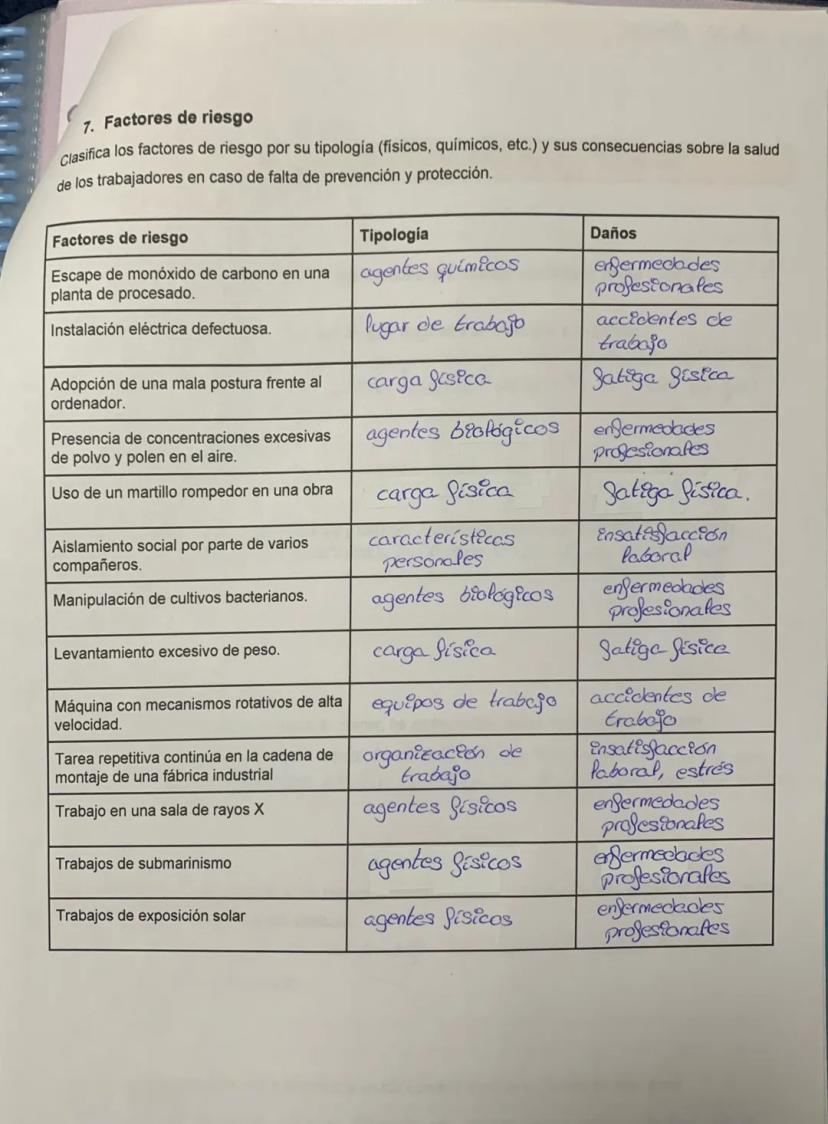 7. Factores de riesgo
Clasifica los factores de riesgo por su tipología (físicos, químicos, etc.) y sus consecuencias sobre la salud
de los trabajadores en caso de falta de prevención y protección.
Factores de riesgo Tipología Daños
Escape de monóxido de carbono en una agentes químicos enfermedades
planta de procesado. profesionales
Instalación eléctrica defectuosa. lugar de trabajo accidentes de
trabajo
Adopción de una mala postura frente al carga física fatiga física
ordenador.
Presencia de concentraciones excesivas agentes biológicos enfermedades
de polvo y polen en el aire. profesionales
Uso de un martillo rompedor en una obra carga física fatiga física.
Aislamiento social por parte de varios características insatisfacción
compañeros. personales laboral
Manipulación de cultivos bacterianos. agentes biológicos enfermedades
profesionales
Levantamiento excesivo de peso. carga física fatiga física
Máquina con mecanismos rotativos de alta equipos de trabajo accidentes de
velocidad. trabajo
Tarea repetitiva continúa en la cadena de organización de insatisfacción
montaje de una fábrica industrial trabajo laboral, estrés
Trabajo en una sala de rayos X agentes físicos enfermedades
profesionales
Trabajos de submarinismo agentes físicos enfermedades
profesionales
Trabajos de exposición solar agentes físicos enfermedades
profesionales